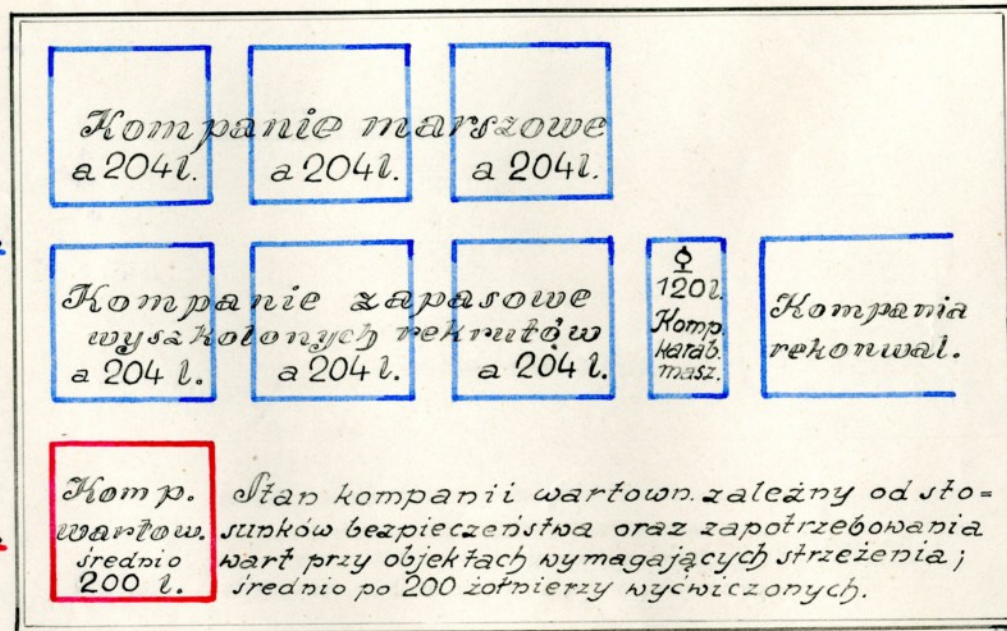 Kompanie marszowe
a 204 l. a 204 l. a 204 l.
Kompanie zapasowe
wyszkolonych rekrutów
a 204 l. a 204 l. a 204 l.
120 l.
Komp.
karab.
masz.
Kompania
rekonwal.
Komp.
wartow.
średnio
200 l.
Stan kompanii wartown. zależny od sto=
sunków bezpieczeństwa oraz zapotrzebowania
wart przy objektach wymagających strzeżenia;
średnio po 200 żołnierzy wyćwiczonych.